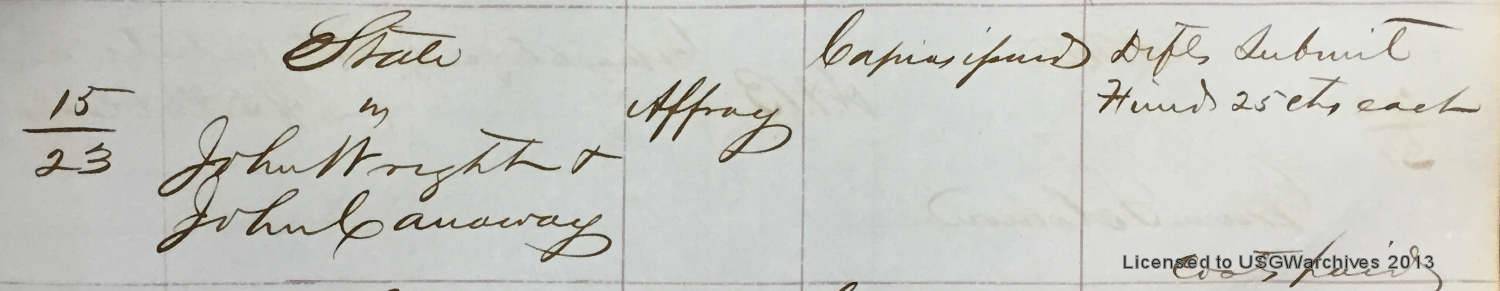 15
23
State
vs
John Wright &
John Canaway
Affray
Capias issued
Defts Submit
Fined 25 cts each
Costs paid
Licensed to USGWarchives 2013